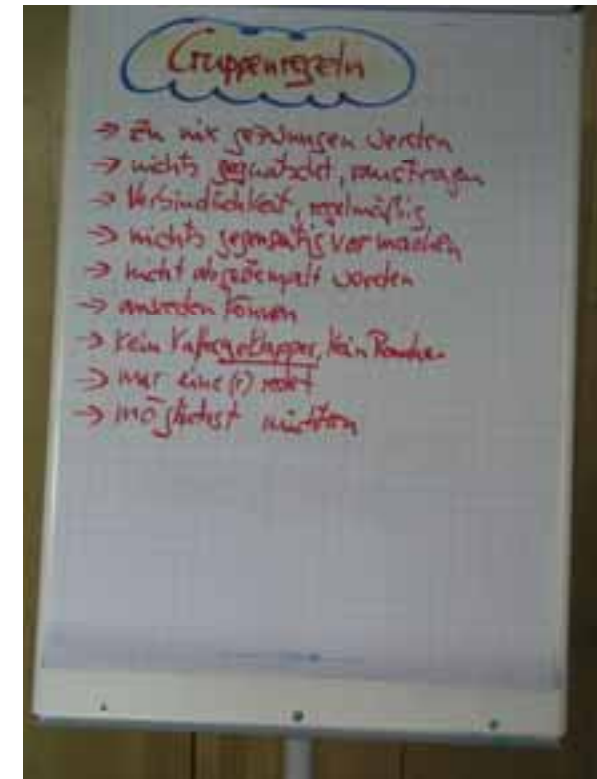 Gruppenregeln
→ zu nix gezwungen werden
→ nichts gequatscht, raustragen
→ Verbindlichkeit, regelmäßig
→ nichts gegenseitig vormachen
→ nicht abgestempelt werden
→ ausreden können
→ kein Kaffeegeklapper, kein Rauchen
→ nur eine(r) redet
→ möglichst